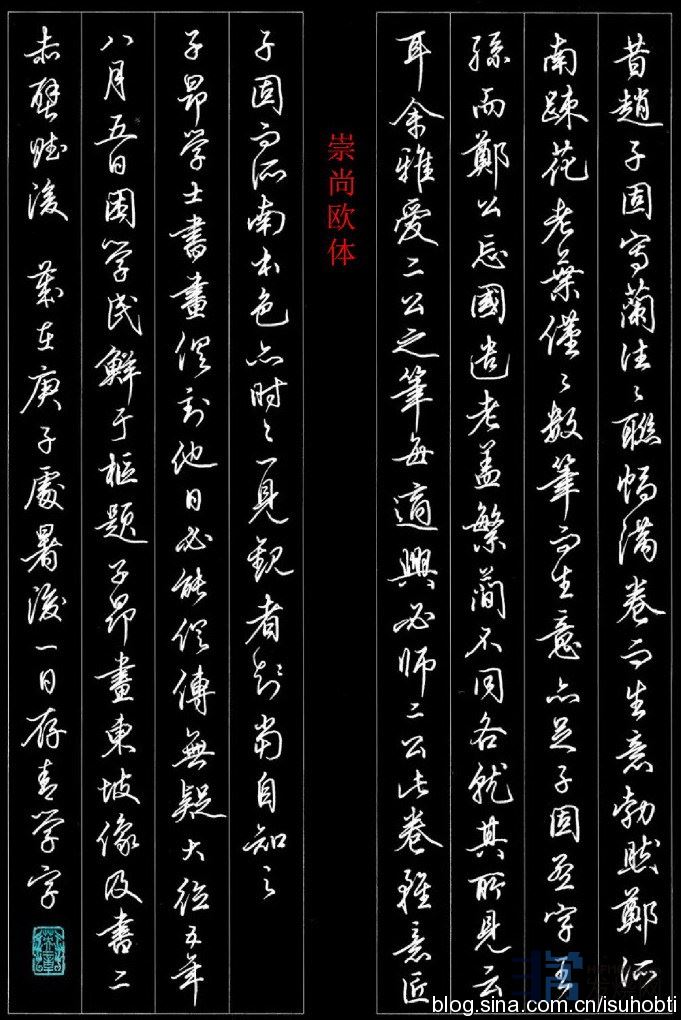 昔趙子固寫蘭往〻聯幅滿卷而生意勃然鄭所
南踈花老葉僅〻數筆而生意亦足子固王
孫而鄭公忘國遺老蓋繁簡不同各就其所見云
耳余雅愛二公之筆每適興必师二公此卷雖意匠
崇尚欧体
子固而所南本色亦时〻一見觀者尚自知之
子昂学士書畫俱到他日必能俱傳無疑大德五年
八月五日困学民鮮于樞題子昂畫東坡像及書二
赤壁賦後 歲在庚子處暑後一日存青学字
blog.sina.com.cn/isuhobti